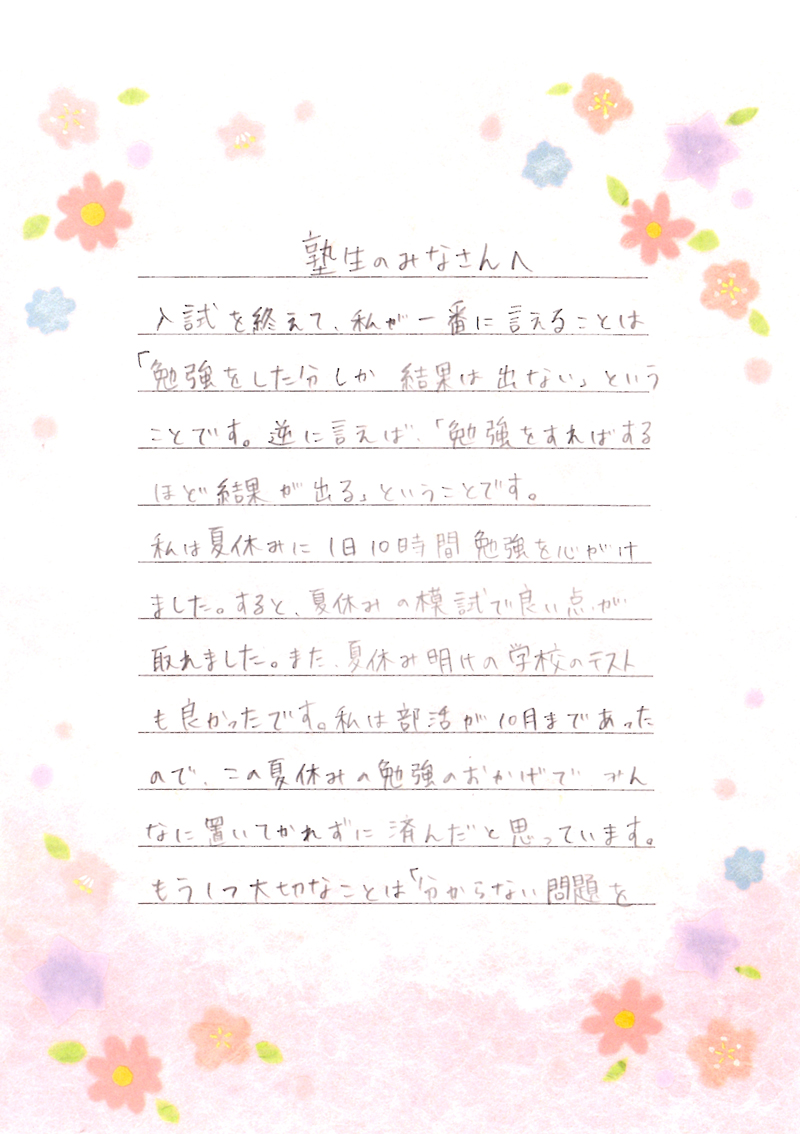 塾生のみなさんへ
入試を終えて、私が一番に言えることは
「勉強をした分しか結果は出ない」という
ことです。逆に言えば、「勉強をすればする
ほど結果が出る」ということです。
私は夏休みに1日10時間勉強を心がけ
ました。すると、夏休みの模試で良い点が
取れました。また、夏休み明けの学校のテスト
も良かったです。私は部活が10月まであった
ので、この夏休みの勉強のおかげでみん
なに置いてかれずに済んだと思っています。
もう1つ大切なことは「分からない問題を